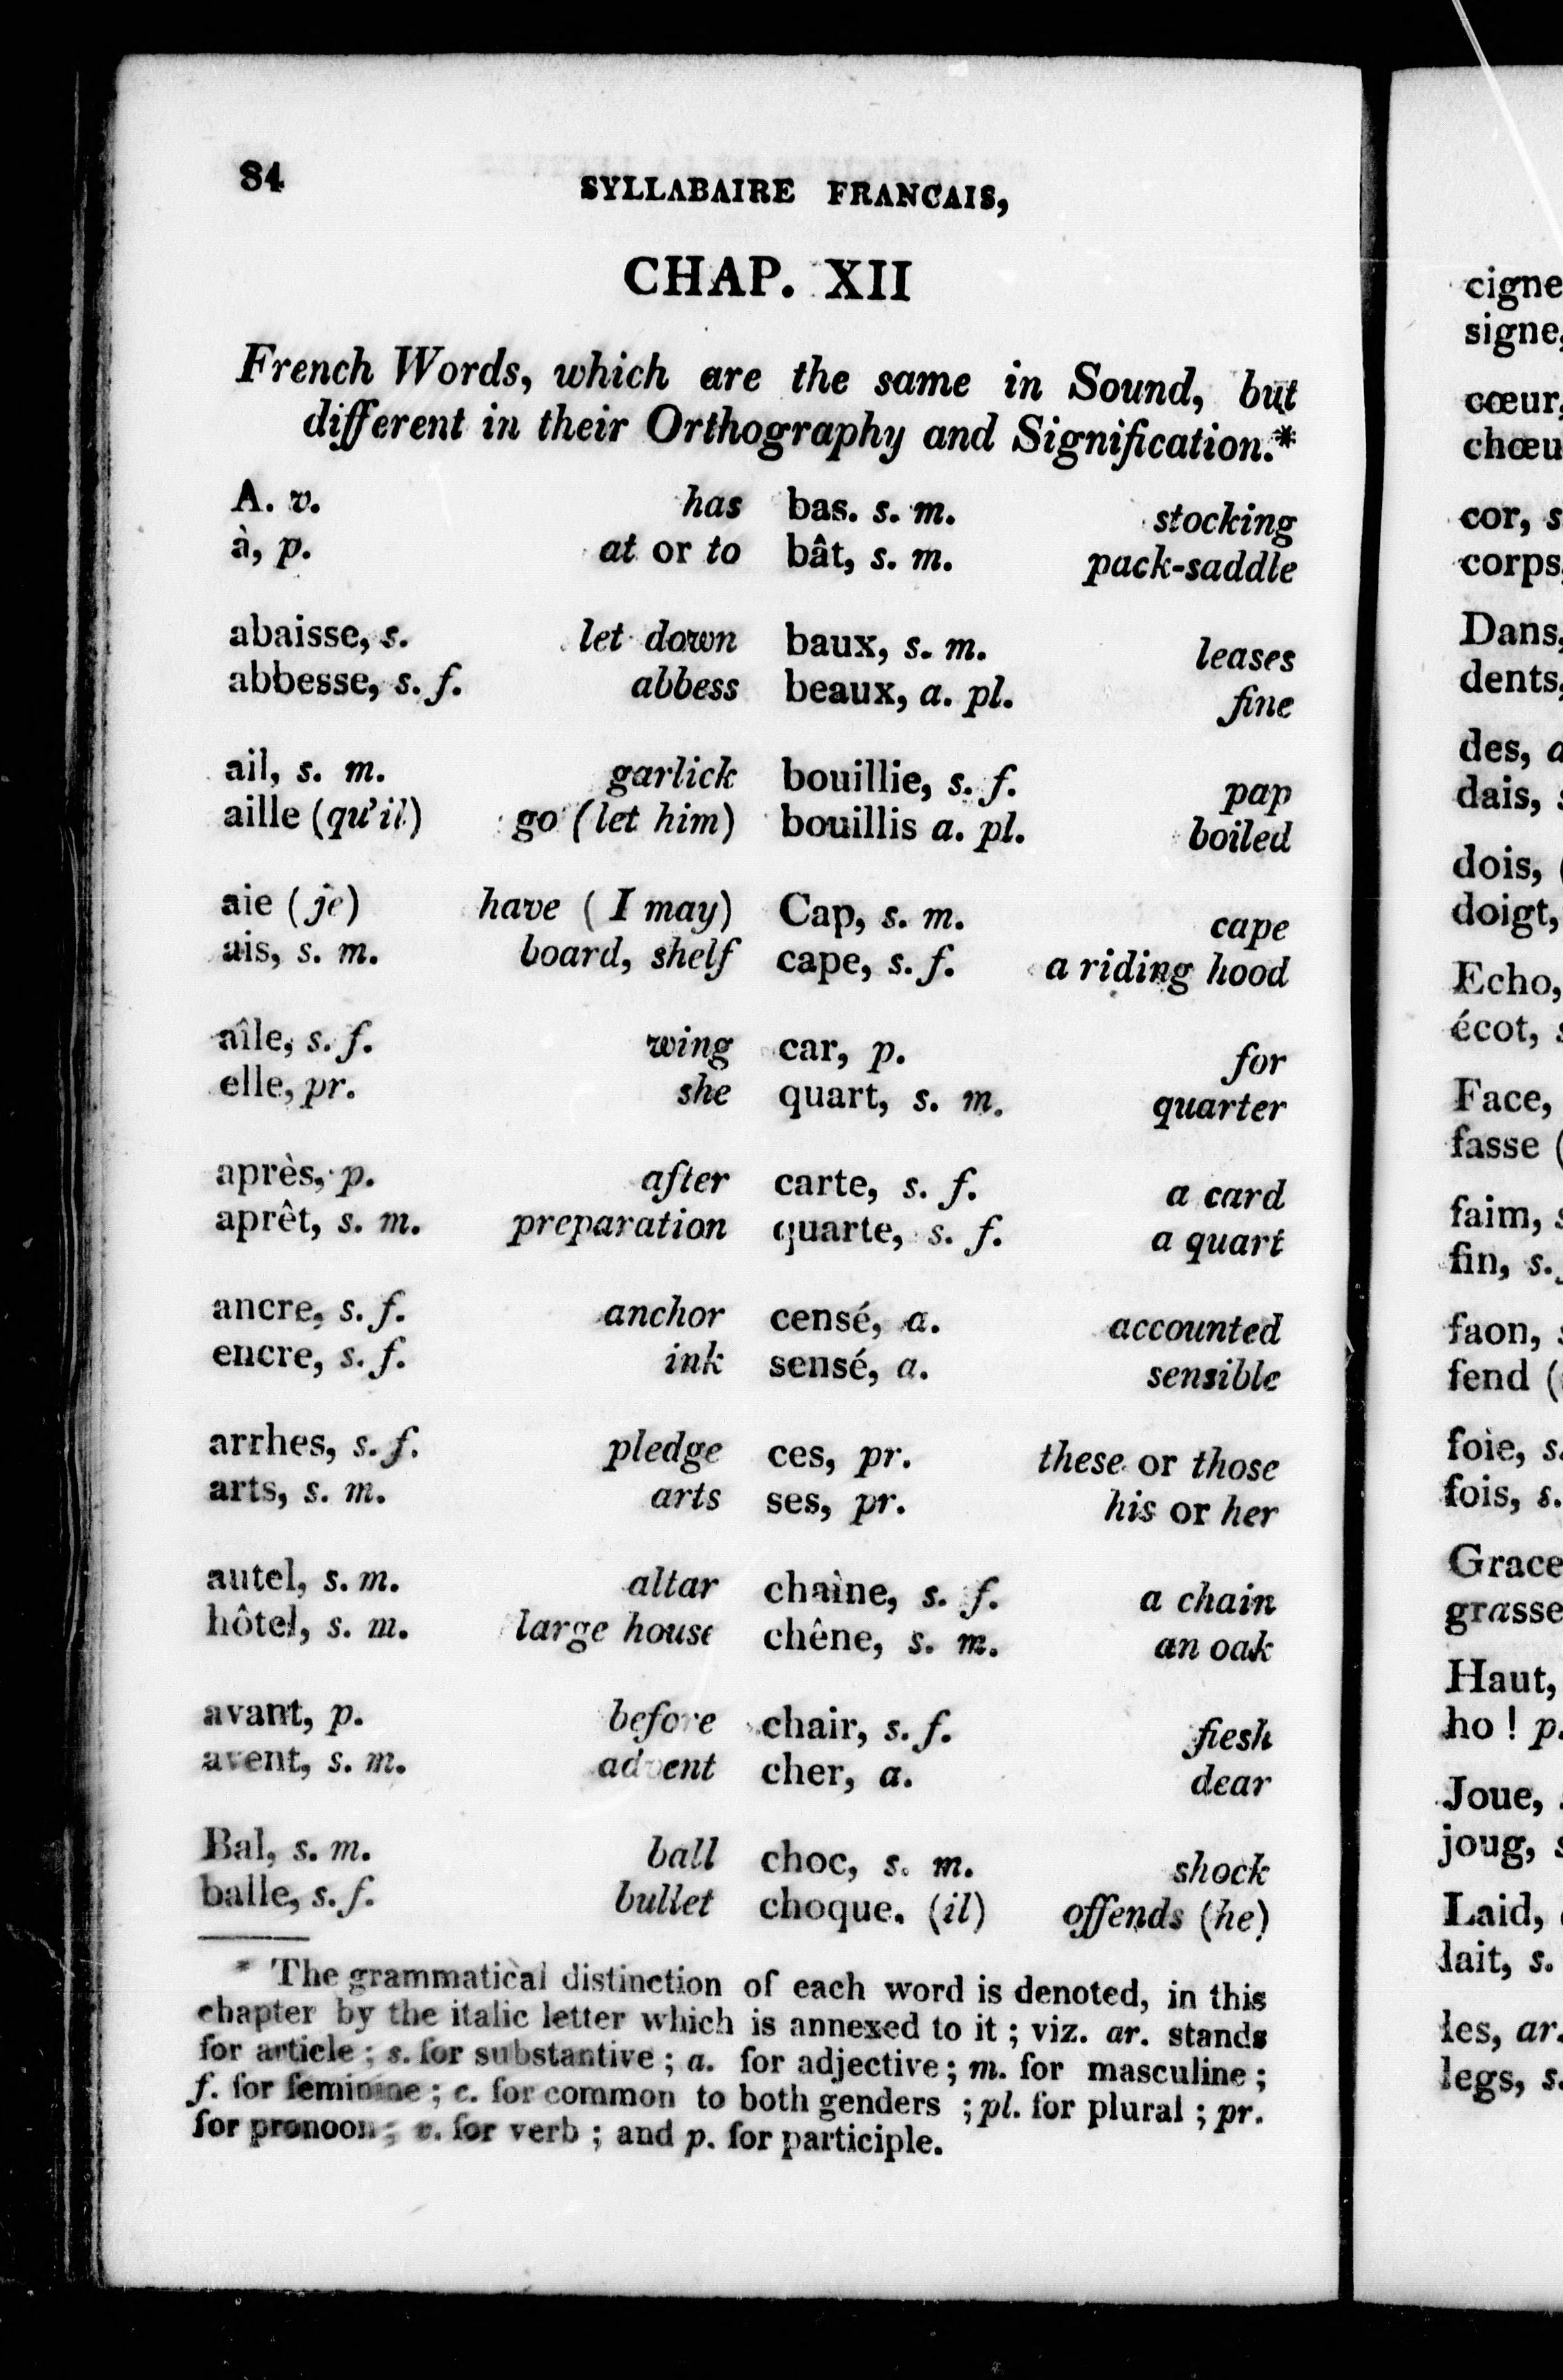 84
SYLLABAIRE FRANCAIS,
CHAP. XII
French Words, which are the same in Sound, but
different in their Orthography and Signification.*
A. v. has
à, p. at or to
abaisse, s. let down
abbesse, s. f. abbess
ail, s. m. garlick
aille (qu'il) go (let him)
aie (je) have (I may)
ais, s. m. board, shelf
aîle, s. f. wing
elle, pr. she
après, p. after
aprêt, s. m. preparation
ancre, s. f. anchor
encre, s. f. ink
arrhes, s. f. pledge
arts, s. m. arts
autel, s. m. altar
hôtel, s. m. large house
avant, p. before
avent, s. m. advent
Bal, s. m. ball
balle, s. f. bullet
bas. s. m. stocking
bât, s. m. pack-saddle
baux, s. m. leases
beaux, a. pl. fine
bouillie, s. f. pap
bouillis a. pl. boiled
Cap, s. m. cape
cape, s. f. a riding hood
car, p. for
quart, s. m. quarter
carte, s. f. a card
quarte, s. f. a quart
censé, a. accounted
sensé, a. sensible
ces, pr. these or those
ses, pr. his or her
chaìne, s. f. a chain
chêne, s. m. an oak
chair, s. f. flesh
cher, a. dear
choc, s. m. shock
choque. (il) offends (he)
* The grammatical distinction of each word is denoted, in this
chapter by the italic letter which is annexed to it ; viz. ar. stands
for article ; s. for substantive ; a. for adjective ; m. for masculine ;
f. for feminine ; c. for common to both genders ; pl. for plural ; pr.
for pronoon ; v. for verb ; and p. for participle.
cigne
signe,
cœur,
chœu
cor, s
corps,
Dans,
dents,
des, a
dais,
dois, (
doigt,
Echo,
écot, s
Face,
fasse (
faim, s
fin, s.
faon, s
fend (
foie, s.
fois, s.
Grace
grasse
Haut,
ho ! p.
Joue,
joug, s
Laid,
lait, s.
les, ar.
legs, s.